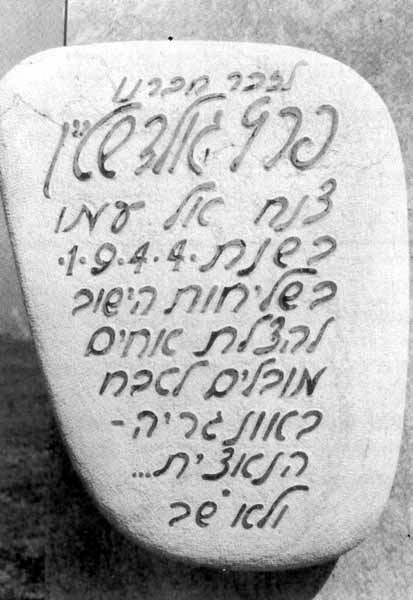 לזכר חברנו
פרץ גולדשטיין
צנח אל עמו
בשנת 1.9.4.4.
בשליחות הישוב
להצלת אחים
מובלים לאבח
באוונגריה-
הנאצית...
ולא שב